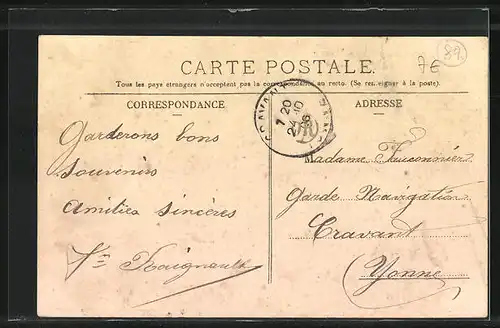 89.
7€
CARTE POSTALE.
Tous les pays étrangers n'acceptent pas la correspondance au recto. (Se renseigner à la poste).
CORRESPONDANCE
ADRESSE
7 20
24 -10
06
Garderons bons
souvenirs
Amitiés sincères
Madame Fauconnier
Garde Navigation
Cravant
(Yonne)